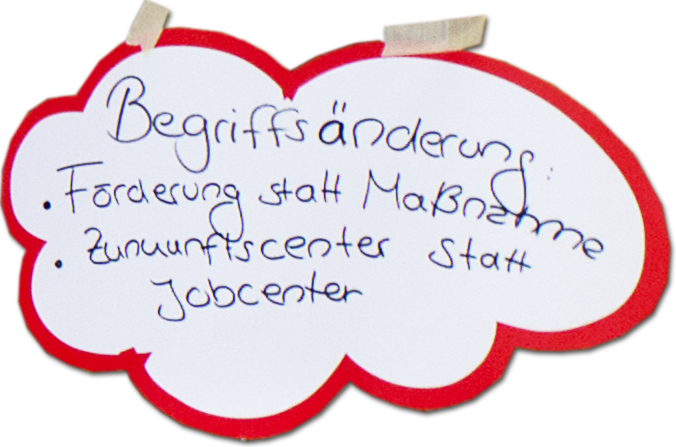 Begriffsänderung:
• Förderung statt Maßnahme
• Zukunftscenter statt
Jobcenter